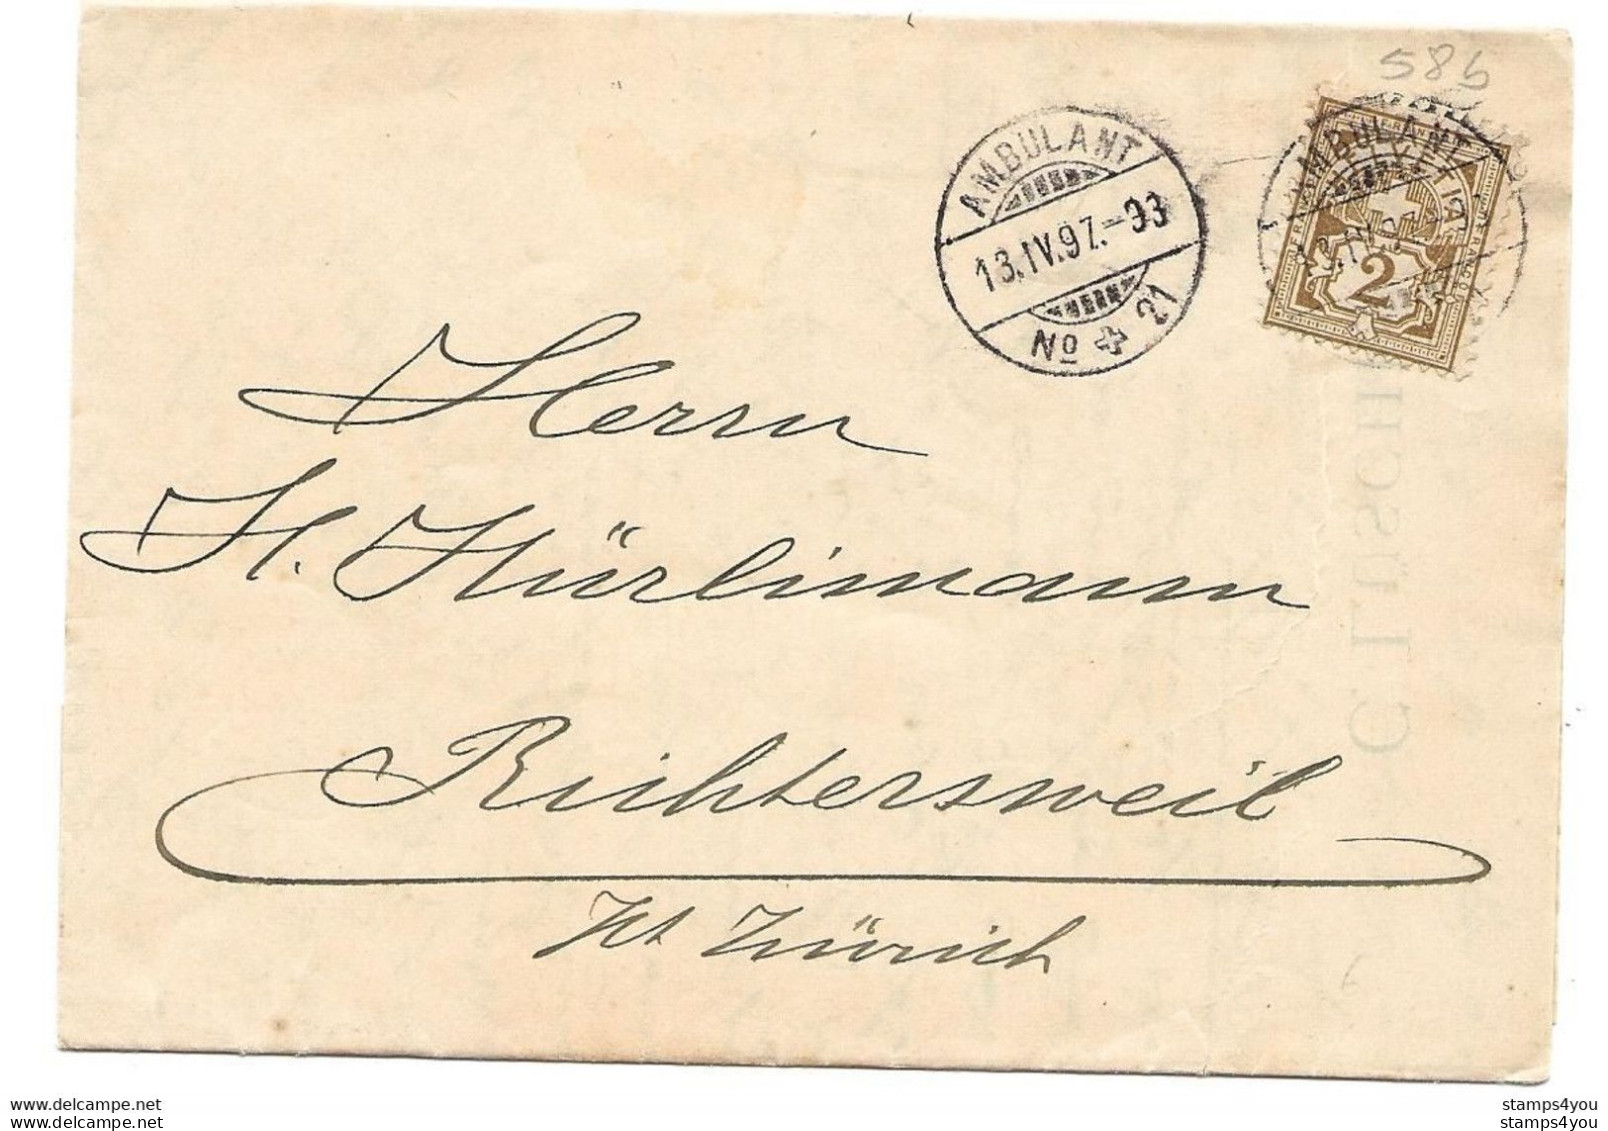 58b
AMBULANT
13.IV.97.-93
No 21
AMBULANT
2
Herrn
H. Hürlimann
Richtersweil
Kt Zürich
G. LÜSCHE
www.delcampe.net
www.delcampe.net
stamps4you
stamps4you